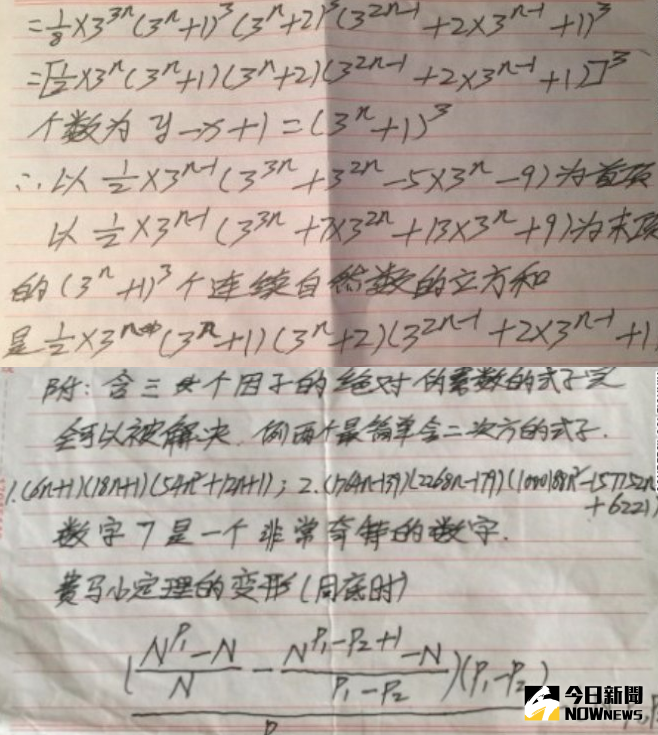 =1/8×3^{3n}(3^n+1)^3(3^n+2)^3(3^{2n-1}+2×3^{n-1}+1)^3
=[1/2×3^n(3^n+1)(3^n+2)(3^{2n-1}+2×3^{n-1}+1)]^3
个数为 y-x+1=(3^n+1)^3
∴以 1/2×3^{n-1}(3^{3n}+3^{2n}-5×3^n-9)为首项
以 1/2×3^{n-1}(3^{3n}+7×3^{2n}+13×3^n+9)为末项
的(3^n+1)^3个连续自然数的立方和
是1/2×3^n(3^n+1)(3^n+2)(3^{2n-1}+2×3^{n-1}+1
附:含三个因子的绝对伪素数的式子完
全可以被解决.例两个最简单含二次方的式子.
1.(6n+1)(18n+1)(54n²+12n+1);2.(1764n-139)(2268n-179)(1000188n²-157752n
+6221)
数字7是一个非常奇特的数字.
费马小定理的变形(同底时)
(\frac{N^{P_1}-N}{N}-\frac{N^{P_1-P_2+1}-N}{P_1-P_2})(P_1-P_2)
P
今日新聞
NOWnews